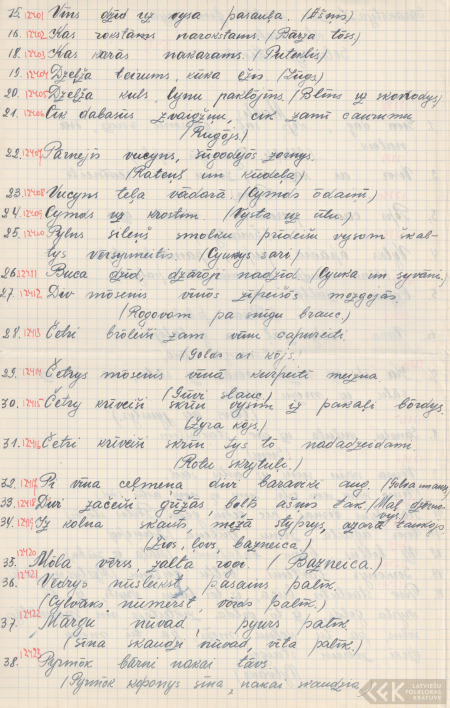 15. 12401 Vīns dzīd iz vysa pasauļa. (Ašnis)
16. 12402 Kas rokstams narokstams. (Bārza tōss)
18. 12403 Kas karās nakarams. (Puteklis)
19. 12404 Dzelža teirums, kūka ežis. (Zirgs)
20. 12405 Dzelža kuls, lynu paklōjīns. (Blīns iz skorodys)
21. 12406 Cik dabasūs zvaigžņu, cik zamī caurumu
(Rugōjs)
22. 12407 Pārnejis vucyns, sūgodejōs zornys.
(Ratenš un kūdeļa)
23. 12408 Vucyns teļa vādarā. (Cymds ōdainī)
24. 12409 Cymds iz krostim. (Vysta iz ūlu.)
25. 12410 Pylns sileņš smolku
lys vērsymeitis. (Cyukys sari)
26. 12411 Buca dzīd, dzārōji nadzīd. (Cyuka un syvāni)
27. 12412 Div mōsenis vīnōs zīpeišōs mozgojās.
(Rogovom pa snīgu brauc.)
28. 12413 Četri brōleiši zam vīnu capureiti
(Golds ar kōjs.)
29. 12414 Četrys mōsenis vīnā kurpeiti meizna.
(Gūvi slauc)
30. 12415 Četry kriveiši skrīn vysim iz pakaļi bōrdys.
(Zyrga kōjs.)
31. 12416 Četri kriveiši skrīn tys tō nadadzeidami
(Rotu skrytuļi.)
32. 12417 Pi vīna celmena divi baraviki aug.
33. 12418 Divi začeiši grīžās, bolts ašnis tak. (Maļ
34. 12419 Iz kolna skaņš, mežā styprys, azarā
(Zvos, lovs, bazneica.)
35. 12420 Mōla vērss, zalta rogi. (Bazneica.)
36. 12421 Vedrys nūsleikst, pasauls palīk.
(Cylvāks nūmierst, vōrds palīk.)
37. 12422 Mārga nūvad, pyurs palīk
(Sīna skaudzi nūvad, vīta palīk.)
38. 12423 Pyrmōk bārni nakai tāvs.
(Pyrmōk koponys sīna, nakai skaudzia)
LATVIEŠU
FOLKLORAS
KRĀTUVE